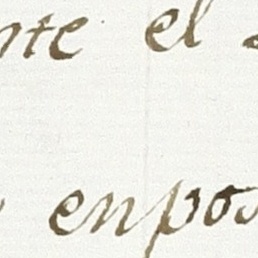 nte el
enpos